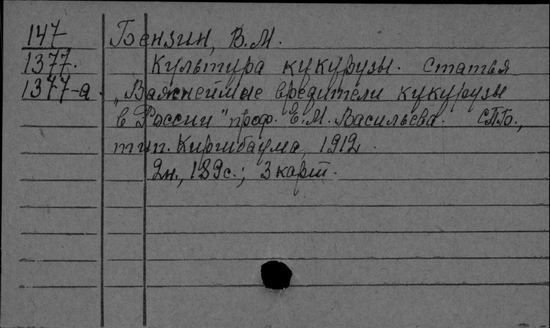 147 Бензин, В.М.
1377. Культура кукурузы. Статья
1377-а. „Важнейшие вредители кукурузы
в России" проф. Е.М. Васильева. СПБ.,
тип. Киршбаума, 1912.
2н., 189с.; 3 карт.